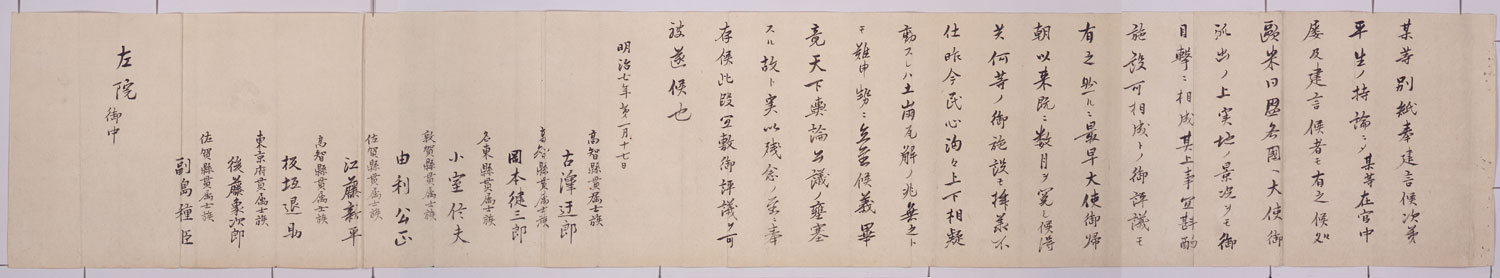 某等別紙奉建言候次第
平生ノ持論ニシテ某等在官中
屡及建言候者モ有之候処
歐米同盟各國ヘ大使御
派出ノ上実地ノ景况ヲモ御
目撃ニ相成其上事宜斟酌
施設可相成トノ御評議モ
有之然ルニ最早大使御帰
朝以来既ニ数月ヲ閲シ候得
共何等ノ御施設モ拝承不
仕昨今民心洶々上下相疑
動スレハ土崩瓦解ノ兆無之ト
モ難申勢ニ立至候義畢
竟天下輿論公議ノ壅塞
スル故ト実以残念ノ至ニ奉
存候此段宜敷御評議ヲ可
被遂候也
明治七年第一月十七日
高智縣貫属士族
古澤迂郎
高智縣貫属士族
岡本健三郎
名東縣貫属士族
小室信夫
敦賀縣貫属士族
由利公正
佐賀縣貫属士族
江藤新平
高智縣貫属士族
板垣退助
東京府貫属士族
後藤象次郎
佐賀縣貫属士族
副島種臣
左院
御中